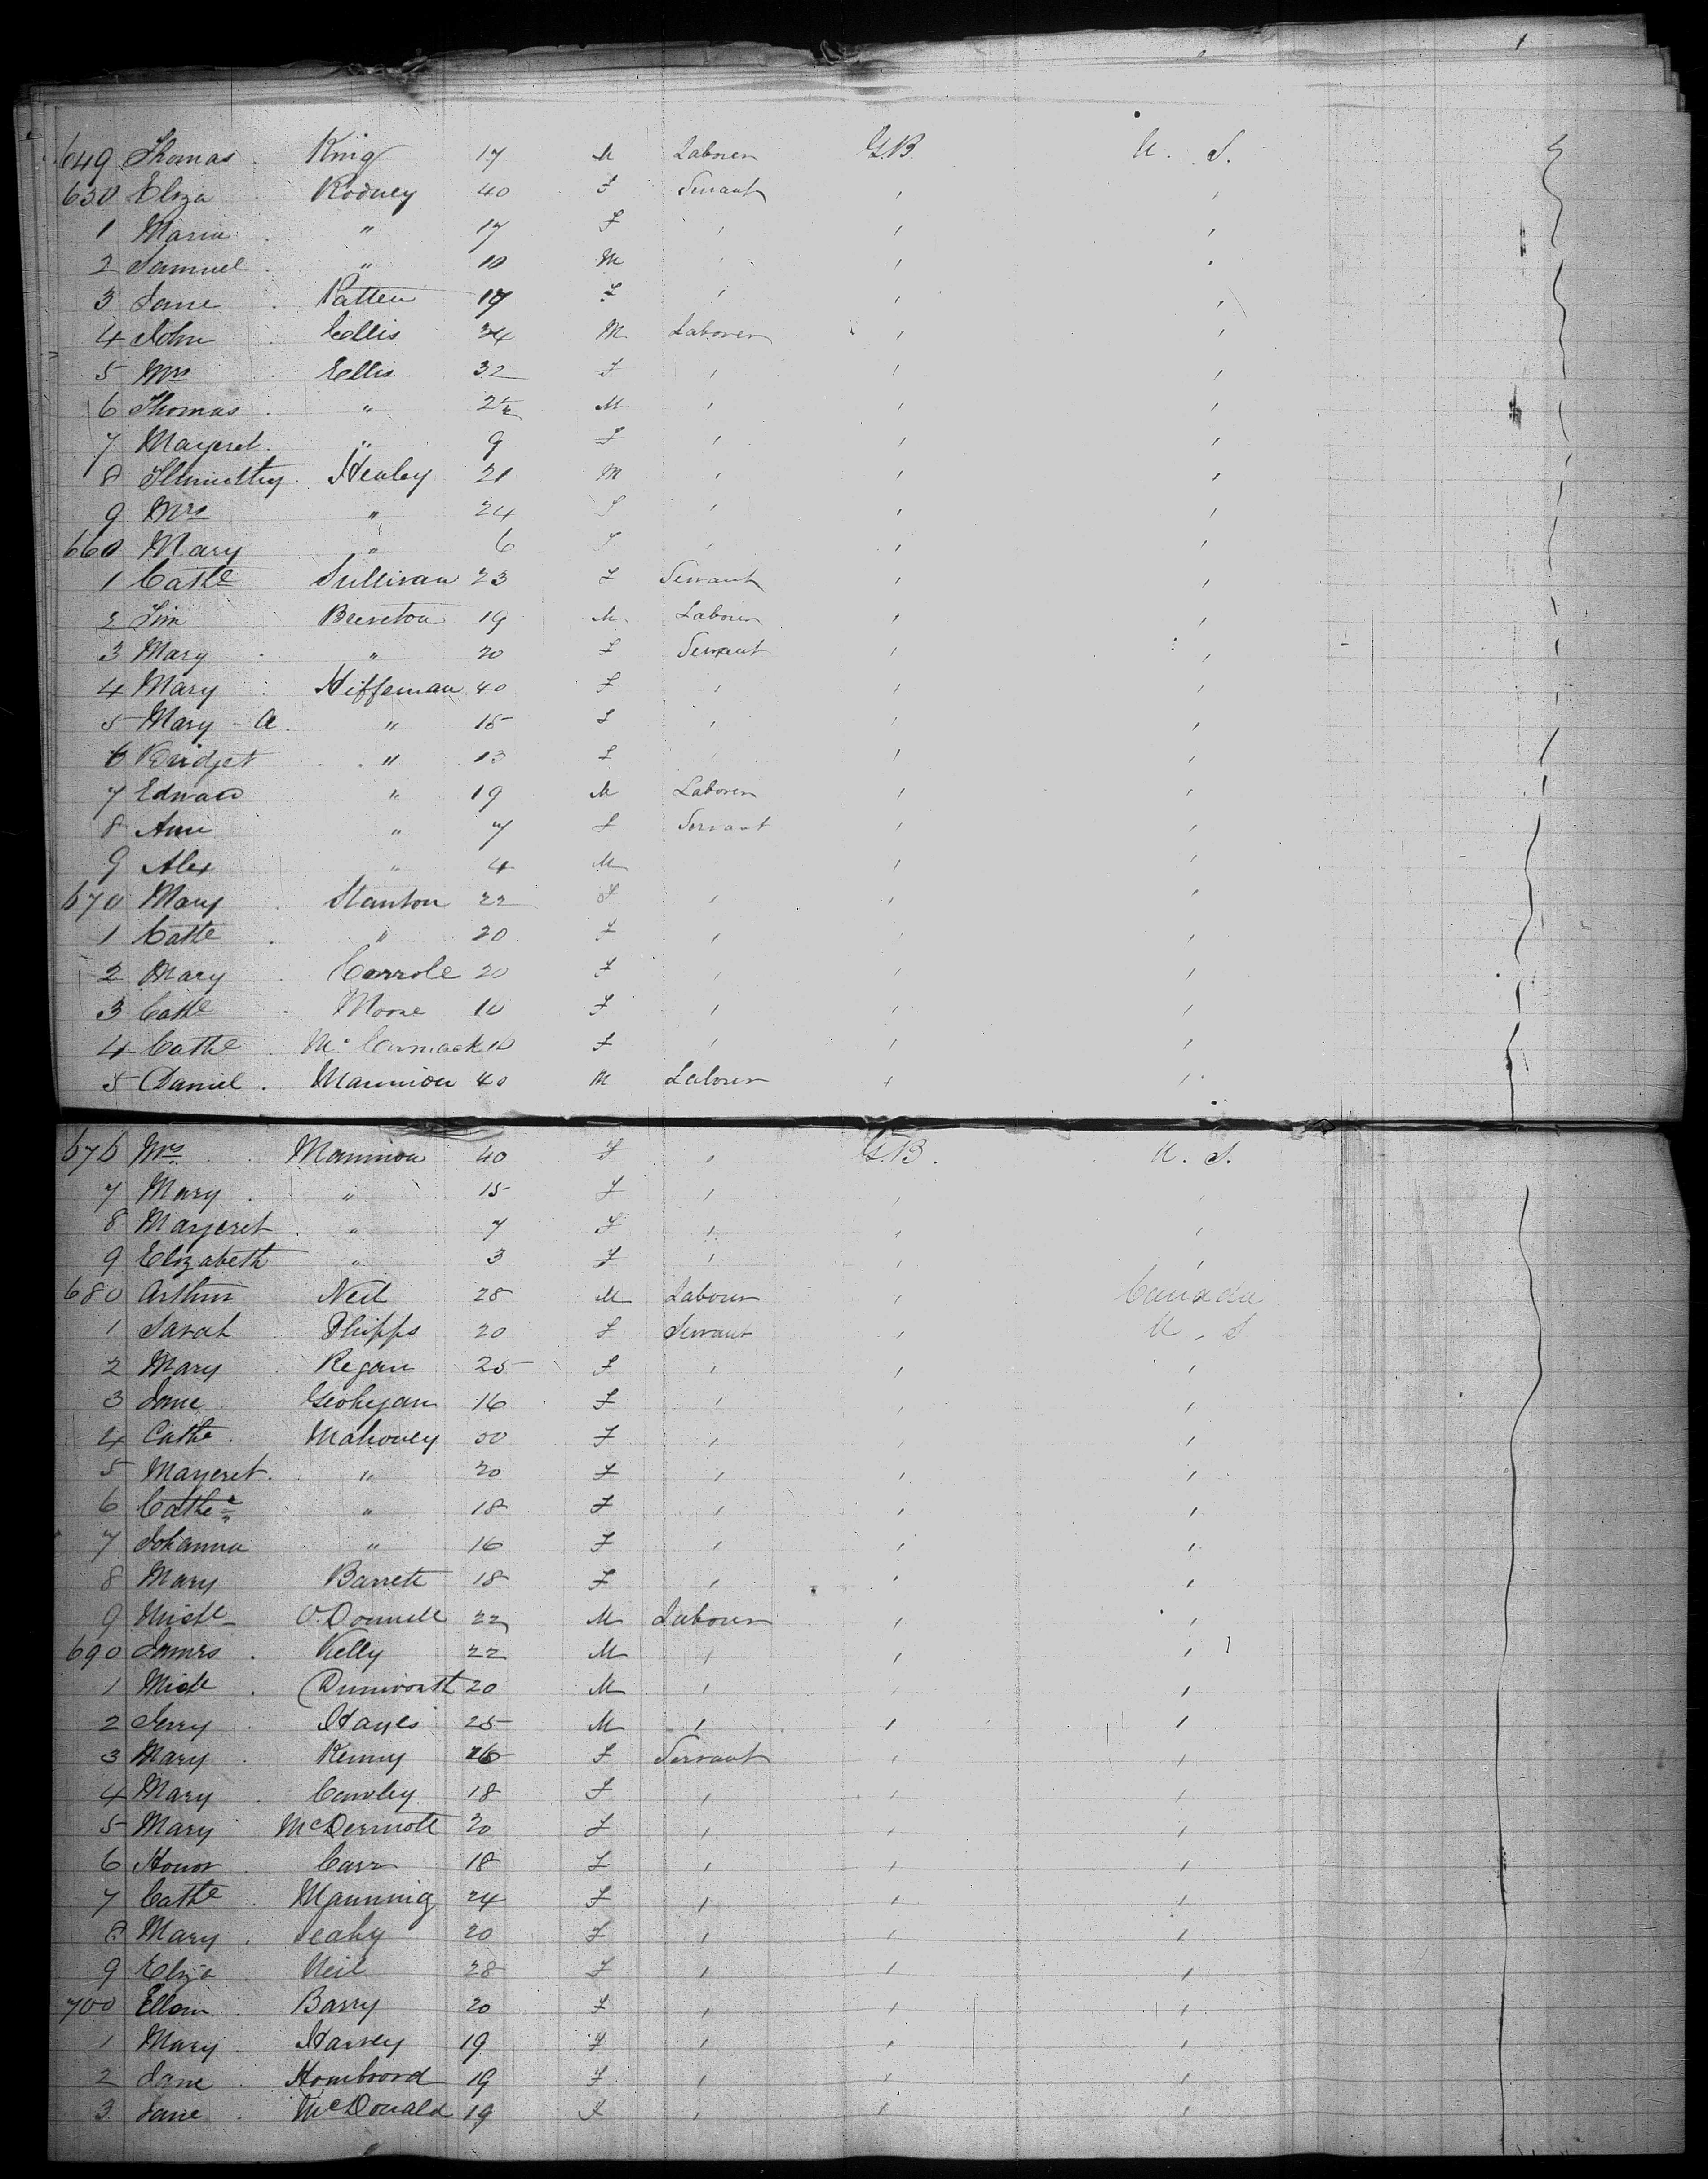 649 Thomas King 17 M Laborer G.B. U. S.
650 Eliza Rodney 40 F Servant , ,
1 Maria " 17 F , , ,
2 Samuel " 10 M , , ,
3 Jane Patten 17 F , , ,
4 John Ellis 34 M Laborer , ,
5 Mrs Ellis 32 F , , ,
6 Thomas " M , , ,
7 Margeret " 9 F , , ,
8 Healey 21 M , , ,
9 Mrs " 24 F , , ,
660 Mary " 6 F , , ,
1 Cathe Sullivan 23 F Servant , ,
2 Jim Brereton 19 M Laborer , ,
3 Mary " 20 F Servant , ,
4 Mary Hiffernan 40 F , , ,
5 Mary - A. " 15 F , , ,
6 Bridget " 13 F , ,
7 Edward " 19 M Laborer , ,
8 Ann " 7 F Servant , ,
9 Alex " 4 M , ,
670 Mary Stanton 22 F , , ,
1 Cathe " 20 F , , ,
2 Mary Carrole 20 F , , ,
3 Cathe Moore 10 F , , ,
4 Cathe Mc Cormack F , , ,
5 Daniel Mannion 40 M Laborer , ,
676 Mrs Mannion 40 F " G.B. U. S.
7 Mary " 15 F , , ,
8 Margeret " 7 F , , ,
9 Elizabeth " 3 F , , ,
680 Arthur Neil 28 M Laborer , Canada
1 Sarah Phipps 20 F Servant , U. S
2 Mary Regan 25 F , , ,
3 Jane Geohegan 16 F , , ,
4 Cathe Mahoney 50 F , , ,
5 Margeret " 20 F , , ,
6 Cathe " 18 F , , ,
7 Johanna " 16 F , , ,
8 Mary Barrett 18 F , , ,
9 Michl O'Donnell 22 M Laborer , ,
690 James Kelly 22 M , , ,
1 Michl Dunworth 20 M , , ,
2 Jerry Hayes 25 M , , ,
3 Mary Kenny F Servant , ,
4 Mary Cawley 18 F , , ,
5 Mary McDermott 20 F , , ,
6 Honor Carr 18 F , , ,
7 Cathe Manning 24 F , , ,
8 Mary Leahy 20 F , , ,
9 Eliza Neil 28 F , , ,
700 Ellen Barry 20 F , , ,
1 Mary Harvey 19 F , , ,
2 Jane 19 F , , ,
3 Jane McDonald 19 F , , ,